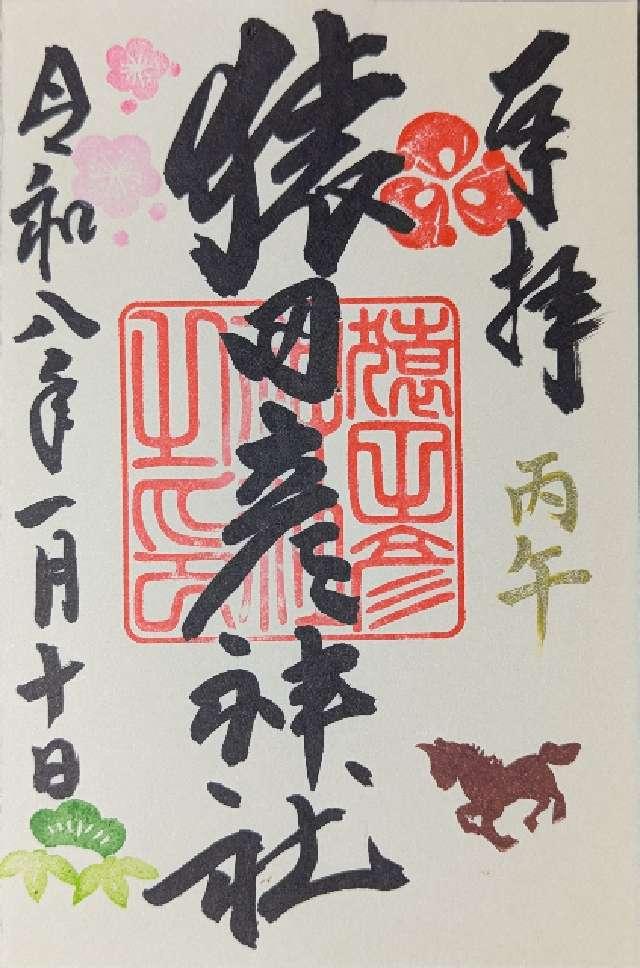 奉拝
丙午
猿田彦神社
令和八年一月十日